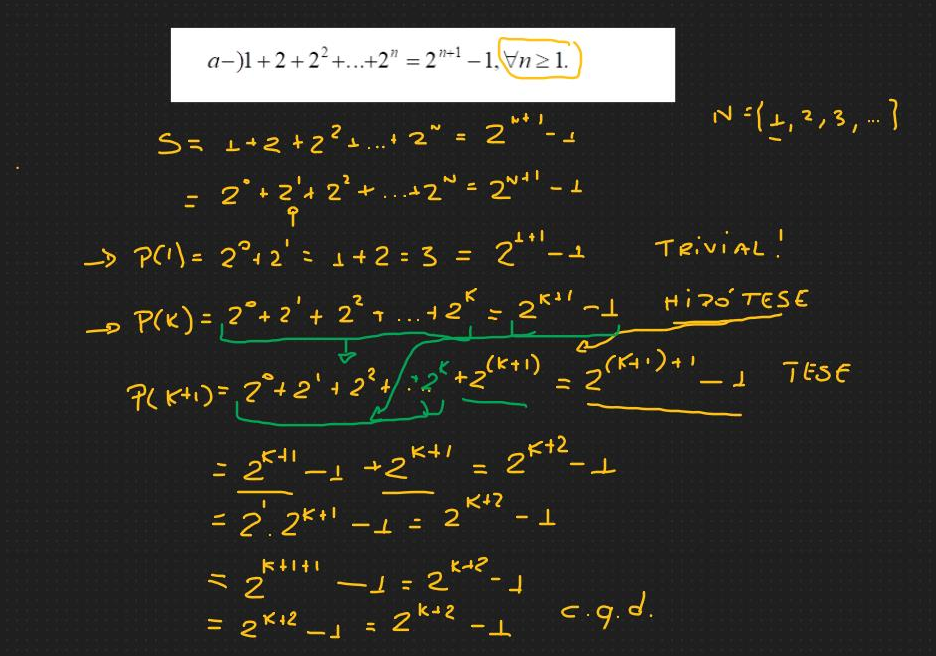 a-)1 + 2 + 2² +...+2ⁿ = 2ⁿ⁺¹ − 1, ∀n ≥ 1.
N = {1, 2, 3, ...}
S = 1 + 2 + 2² + ... + 2ᴺ = 2ᴺ⁺¹ - 1
= 2⁰ + 2¹ + 2² + ... + 2ᴺ = 2ᴺ⁺¹ - 1
→ P(1) = 2⁰ + 2¹ = 1 + 2 = 3 = 2¹⁺¹ - 1 TRiViAL!
→ P(K) = 2⁰ + 2¹ + 2² + ... + 2ᴷ = 2ᴷ⁺¹ - 1 HiPÓTESE
P(K+1) = 2⁰ + 2¹ + 2² + ... + 2ᴷ + 2⁽ᴷ⁺¹⁾ = 2⁽ᴷ⁺¹⁾⁺¹ - 1 TESE
= 2ᴷ⁺¹ - 1 + 2ᴷ⁺¹ = 2ᴷ⁺² - 1
= 2¹ . 2ᴷ⁺¹ - 1 = 2ᴷ⁺² - 1
= 2ᴷ⁺¹⁺¹ - 1 = 2ᴷ⁺² - 1
= 2ᴷ⁺² - 1 = 2ᴷ⁺² - 1 c.q.d.